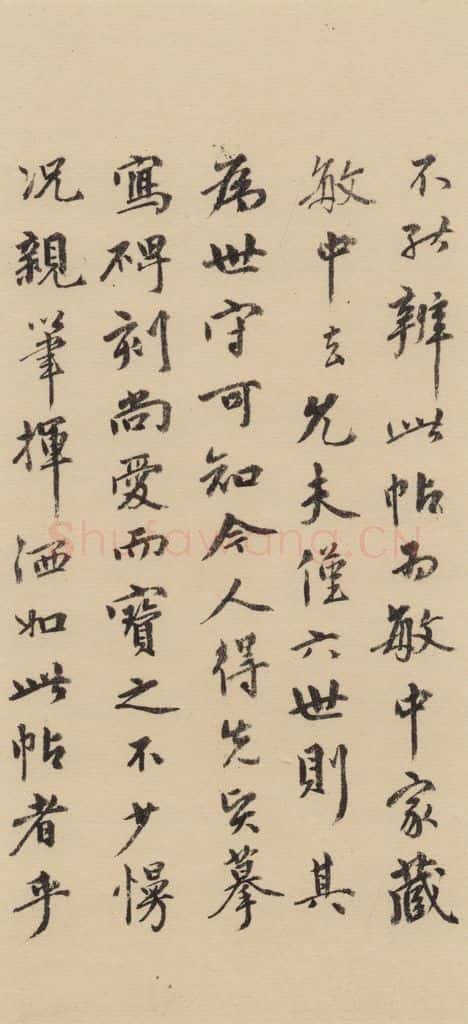 不能辨此帖為敏中家藏
敏中去堯夫僅六世則其
為世守可知今人得先賢摹
寫碑刻尚愛而寶之不少慢
況親筆揮洒如此帖者乎
Shufawang.CN